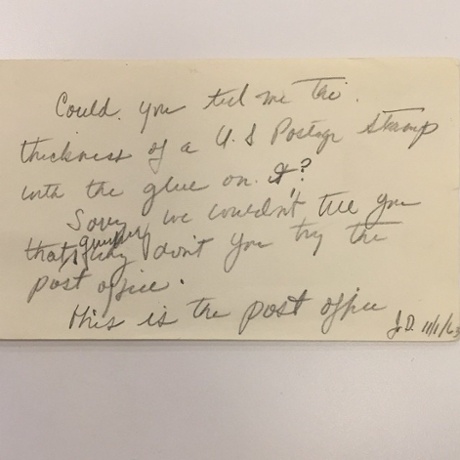 Could you tell me the
thickness of a U.S Postage Stamp
with the glue on it?
Sorry, we couldn't tell you
that quickly. Why don't you try the
post office.
This is the post office
J.D. 11/1/63